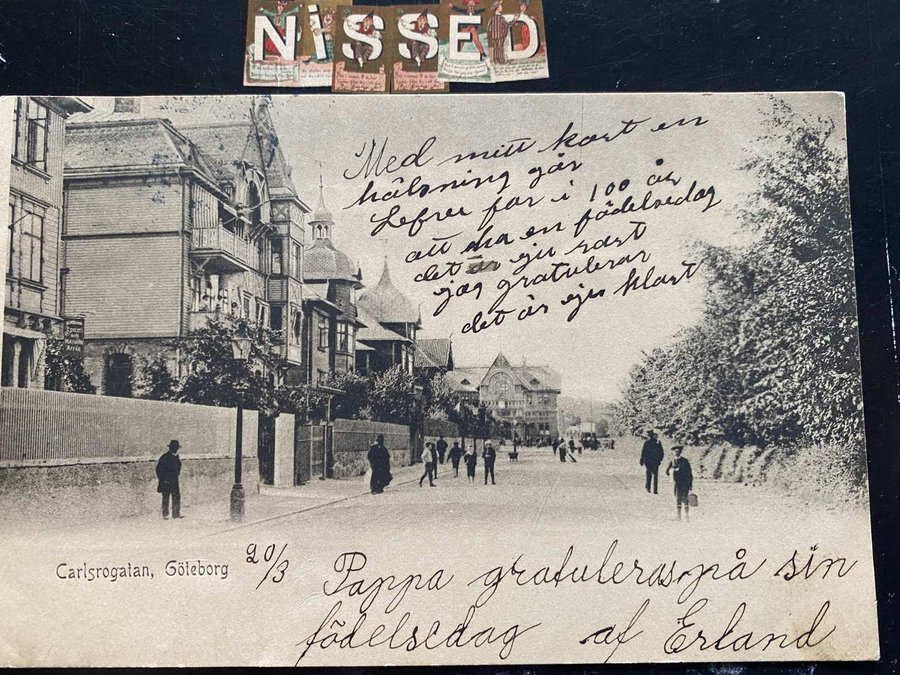 NiSSED
Med mitt kort en
hälsning går
Lefver far i 100 år
att ha en födelsedag
det är eju rart
jag gratulerar
det är eju klart
Carlsrogatan, Göteborg
20/3
Pappa gratuleras på sin
födelsedag af Erland